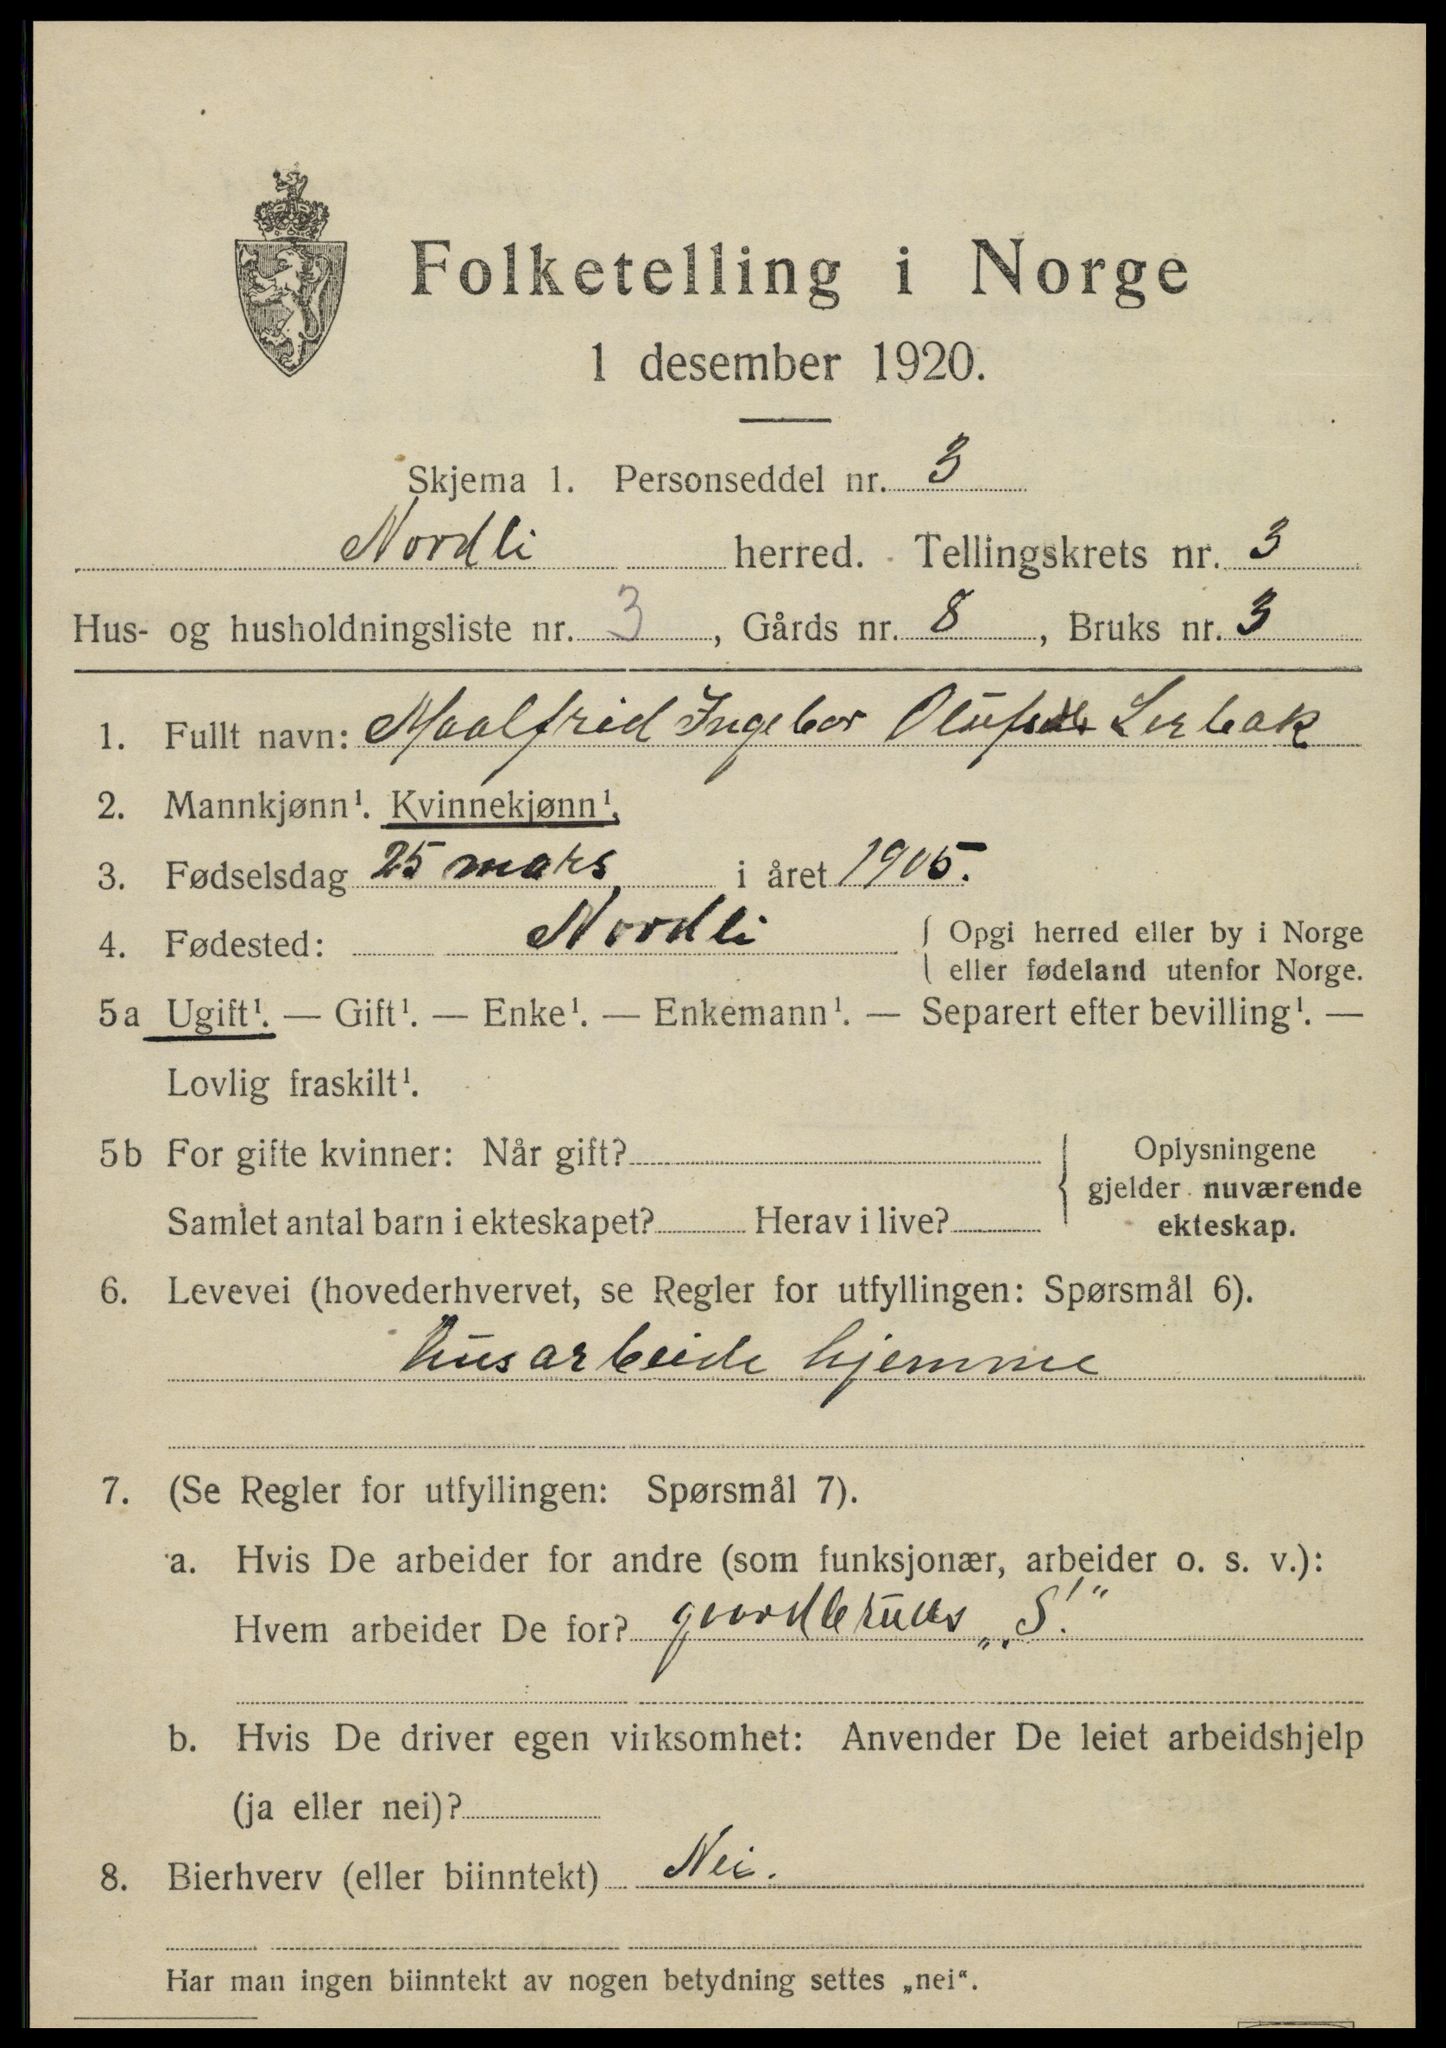 Folketelling i Norge
1 desember 1920.
Skjema 1. Personseddel nr. 3
Nordli herred. Tellingskrets nr. 3
Hus- og husholdningsliste nr. 3, Gårds nr. 8, Bruks nr. 3
1. Fullt navn: Maalfrid Ingebor Lerbak
2. Mannkjønn¹. Kvinnekjønn¹.
3. Fødselsdag 25 mars i året 1905.
4. Fødested: Nordli { Opgi herred eller by i Norge
eller fødeland utenfor Norge.
5a Ugift¹. — Gift¹. — Enke¹. — Enkemann¹. — Separert efter bevilling¹. —
Lovlig fraskilt¹.
5b For gifte kvinner: Når gift? { Oplysningene
gjelder nuværende
Samlet antal barn i ekteskapet? Herav i live? ekteskap.
6. Levevei (hovederhvervet, se Regler for utfyllingen: Spørsmål 6).
Husarbeide hjemme
7. (Se Regler for utfyllingen: Spørsmål 7).
a. Hvis De arbeider for andre (som funksjonær, arbeider o. s. v.):
Hvem arbeider De for? „S."
b. Hvis De driver egen virksomhet: Anvender De leiet arbeidshjelp
(ja eller nei)?
8. Bierhverv (eller biinntekt) Nei.
Har man ingen biinntekt av nogen betydning settes „nei“.